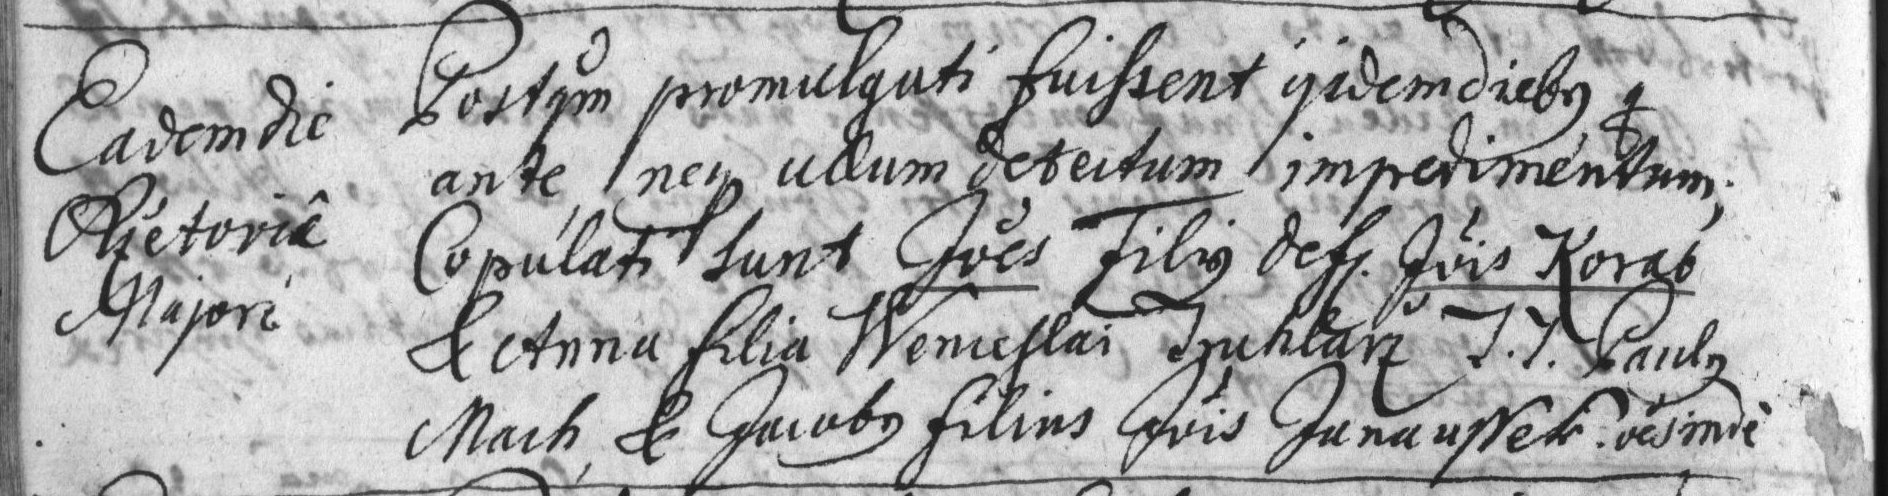 Eadem die
Rzetoriæ
Majori
Postqm promulgati fuissent iisdem dieby q
ante, neq ullum detectum impedimentum,
Copulati sunt Jões Filiy def. Jõis Korab
& Anna filia Wenceslai Truhlarz T.T. Pauly
Mach, & Jacoby filius Jõis Janaussek. oẽs inde